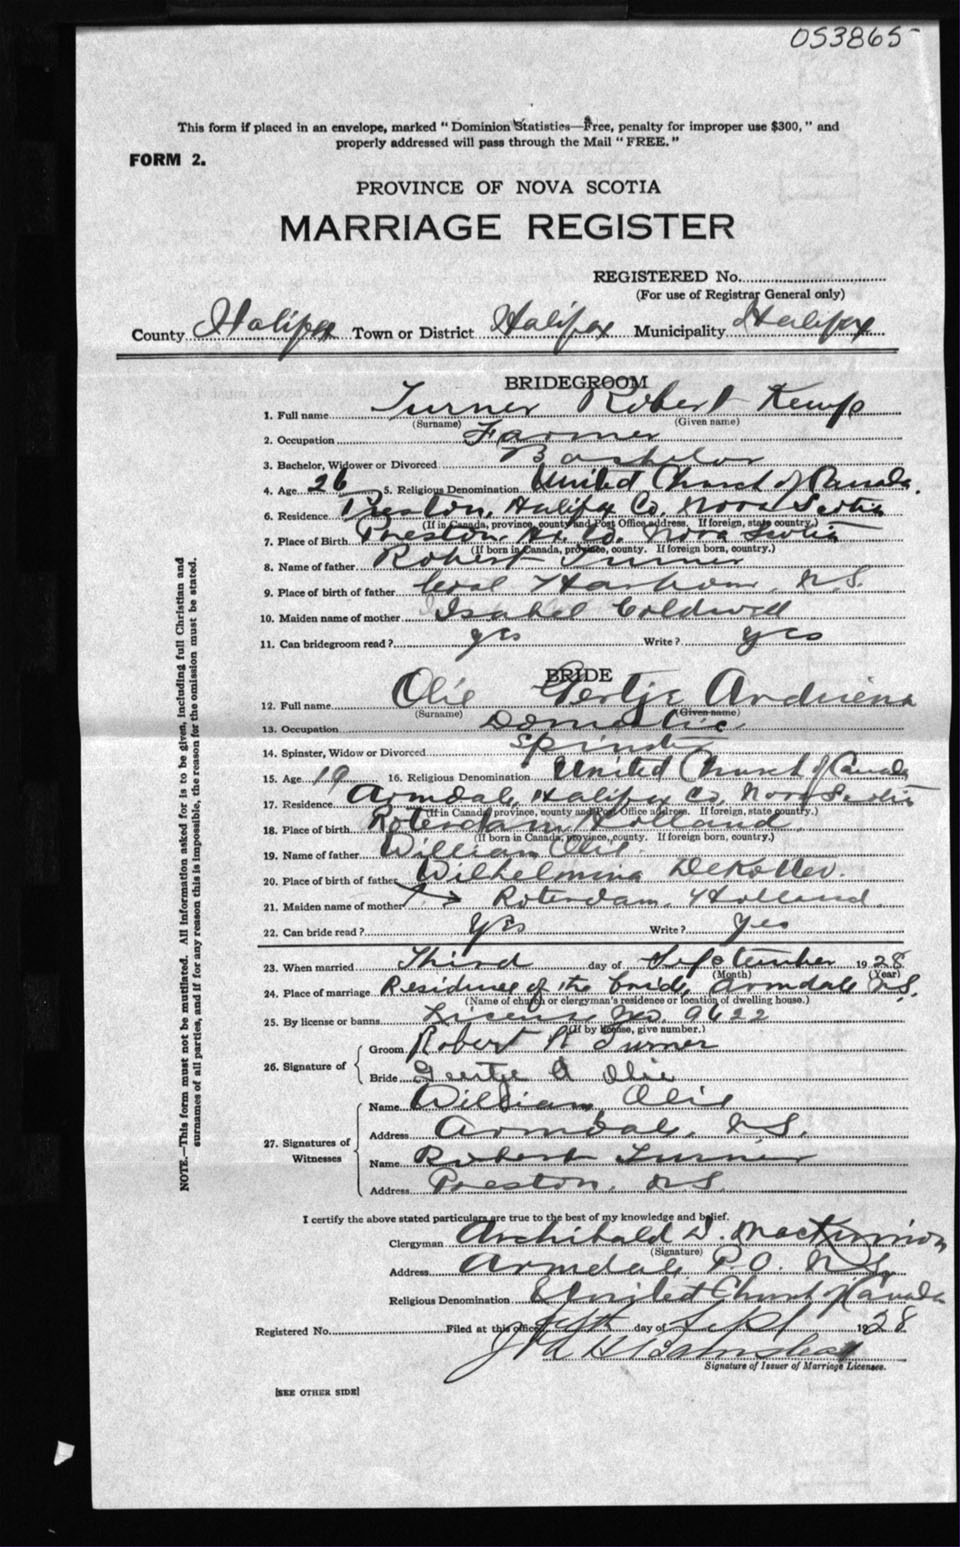 053865
This form if placed in an envelope, marked "Dominion Statistics—Free, penalty for improper use $300," and
properly addressed will pass through the Mail "FREE."
FORM 2.
PROVINCE OF NOVA SCOTIA
MARRIAGE REGISTER
REGISTERED No.
(For use of Registrar General only)
County Halifax Town or District Halifax Municipality Halifax
BRIDEGROOM
1. Full name Turner Robert Kemp
(Surname) (Given name)
2. Occupation Farmer
3. Bachelor, Widower or Divorced Bachelor
4. Age 26 5. Religious Denomination United Church of Canada.
6. Residence Preston, Halifax Co. Nova Scotia
(If in Canada, province, county and Post Office address. If foreign, state country.)
7. Place of Birth Preston, Hx. Co. Nova Scotia
(If born in Canada, province, county. If foreign born, country.)
8. Name of father Robert Turner
9. Place of birth of father Cole Harbour, N.S.
10. Maiden name of mother Isabel Coldwell
11. Can bridegroom read? yes Write? yes
BRIDE
12. Full name Olie Gertje Ardriena
(Surname) (Given name)
13. Occupation Domestic
14. Spinster, Widow or Divorced Spinster
15. Age 19 16. Religious Denomination United Church of Canada
17. Residence Armdale, Halifax Co, Nova Scotia
(If in Canada, province, county and Post Office address. If foreign, state country.)
18. Place of birth Roterdam, Holland
(If born in Canada, province, county. If foreign born, country.)
19. Name of father William Olie.
20. Place of birth of father Wilhelmina DeKotter.
21. Maiden name of mother Roterdam, Holland.
22. Can bride read? Yes Write? Yes
23. When married Third day of September 1928
(Month) (Year)
24. Place of marriage Residence of the bride, Armdale N.S.
(Name of church or clergyman's residence or location of dwelling house.)
25. By license or banns License No. 9622
(If by license, give number.)
26. Signature of
Groom Robert K Turner
Bride Geertje A Olie
27. Signatures of Witnesses
Name William Olie
Address Armdale, N.S.
Name Robert Turner
Address Preston, N.S.
I certify the above stated particulars are true to the best of my knowledge and belief.
Clergyman Archibald D. MacKinnon
(Signature)
Address Armdale P.O. N.S.
Religious Denomination United Church of Canada
Registered No. Filed at this office fifth day of Sept 1928
Signature of Issuer of Marriage Licenses.
[SEE OTHER SIDE]
NOTE.—This form must not be mutilated. All information asked for is to be given, including full Christian and
surnames of all parties, and if for any reason this is impossible, the reason for the omission must be stated.